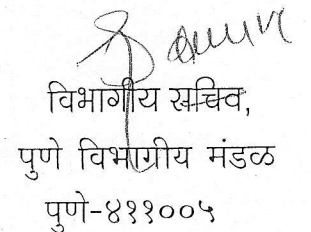 विभागीय सचिव,
पुणे विभागीय मंडळ
पुणे-४११००५